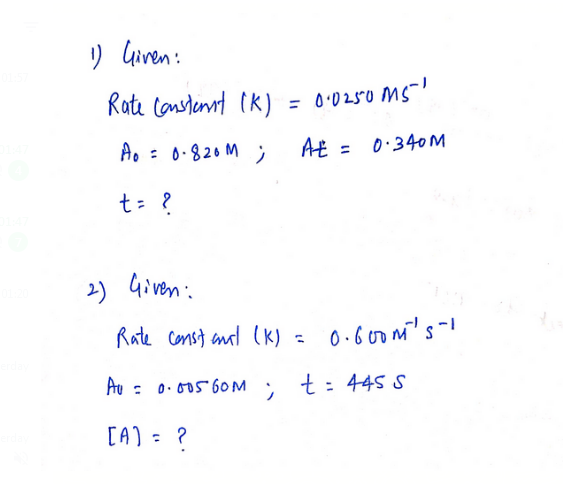 1) Given:
Rate Constant (K) = 0.0250 MS⁻¹
A₀ = 0.820 M ; At = 0.340M
t = ?
2) Given:
Rate constant (K) = 0.600 M⁻¹ s⁻¹
A₀ = 0.00560M ; t = 445 S
[A] = ?